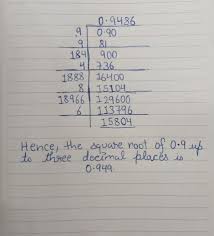 0.9486
.9 0.90
9 81
184 900
4 736
1888 16400
8 15104
18966 129600
6 113796
15804
Hence, the square root of 0.9 up
to three decimal places is
0.949